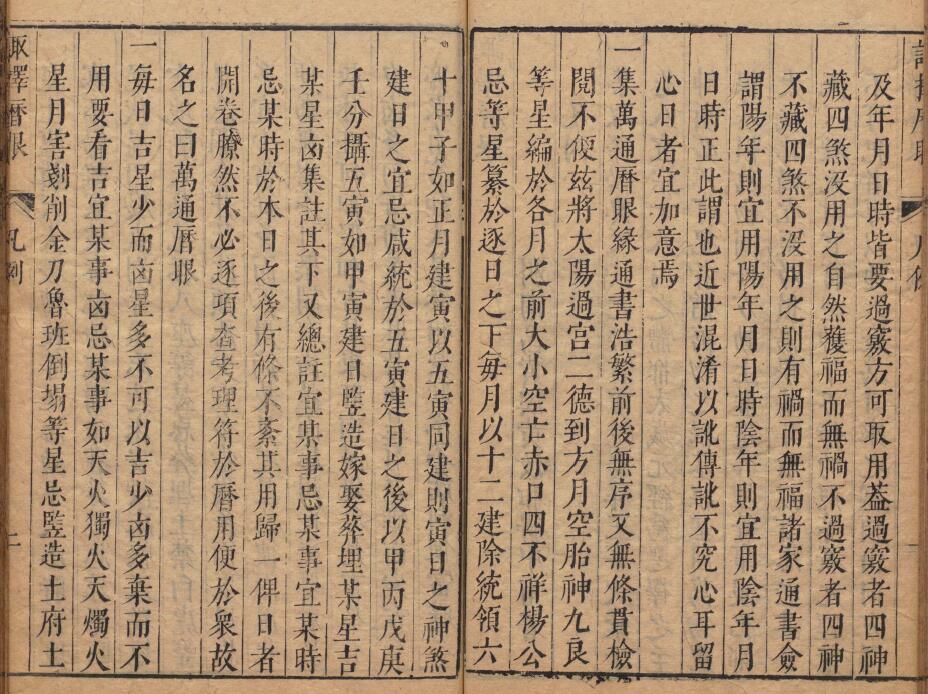 及年月日時皆要過竅方可取用葢過竅者四神
藏四煞没用之自然獲福而無禍不過竅者四神
不藏四煞不没用之則有禍而無福諸家通書僉
謂陽年則宜用陽年月日時陰年則宜用陰年月
日時正此謂也近世混淆以訛傳訛不究心耳留
心日者宜加意焉
一集萬通曆眼緣通書浩繁前後無序又無條貫檢
閱不便玆將太陽過宮二德到方月空胎神九良
等星編於各月之前大小空亡赤口四不祥楊公
忌等星纂於逐日之下每月以十二建除統領六
十甲子如正月建寅以五寅同建則寅日之神煞
建日之宜忌咸統於五寅建日之後以甲丙戊庚
壬分攝五寅如甲寅建日豎造嫁娶葬埋某星吉
某星凶集註其下又總註宜某事忌某事宜某時
忌某時於本日之後有條不紊其用歸一俾日者
開卷瞭然不必逐項查考理符於曆用便於衆故
名之曰萬通曆眼
一每日吉星少而凶星多不可以吉少凶多棄而不
用要看吉宜某事凶忌某事如天火獨火天燭火
星月害劃削金刀魯班倒塌等星忌豎造土府土
諏擇曆眼 凡例 二